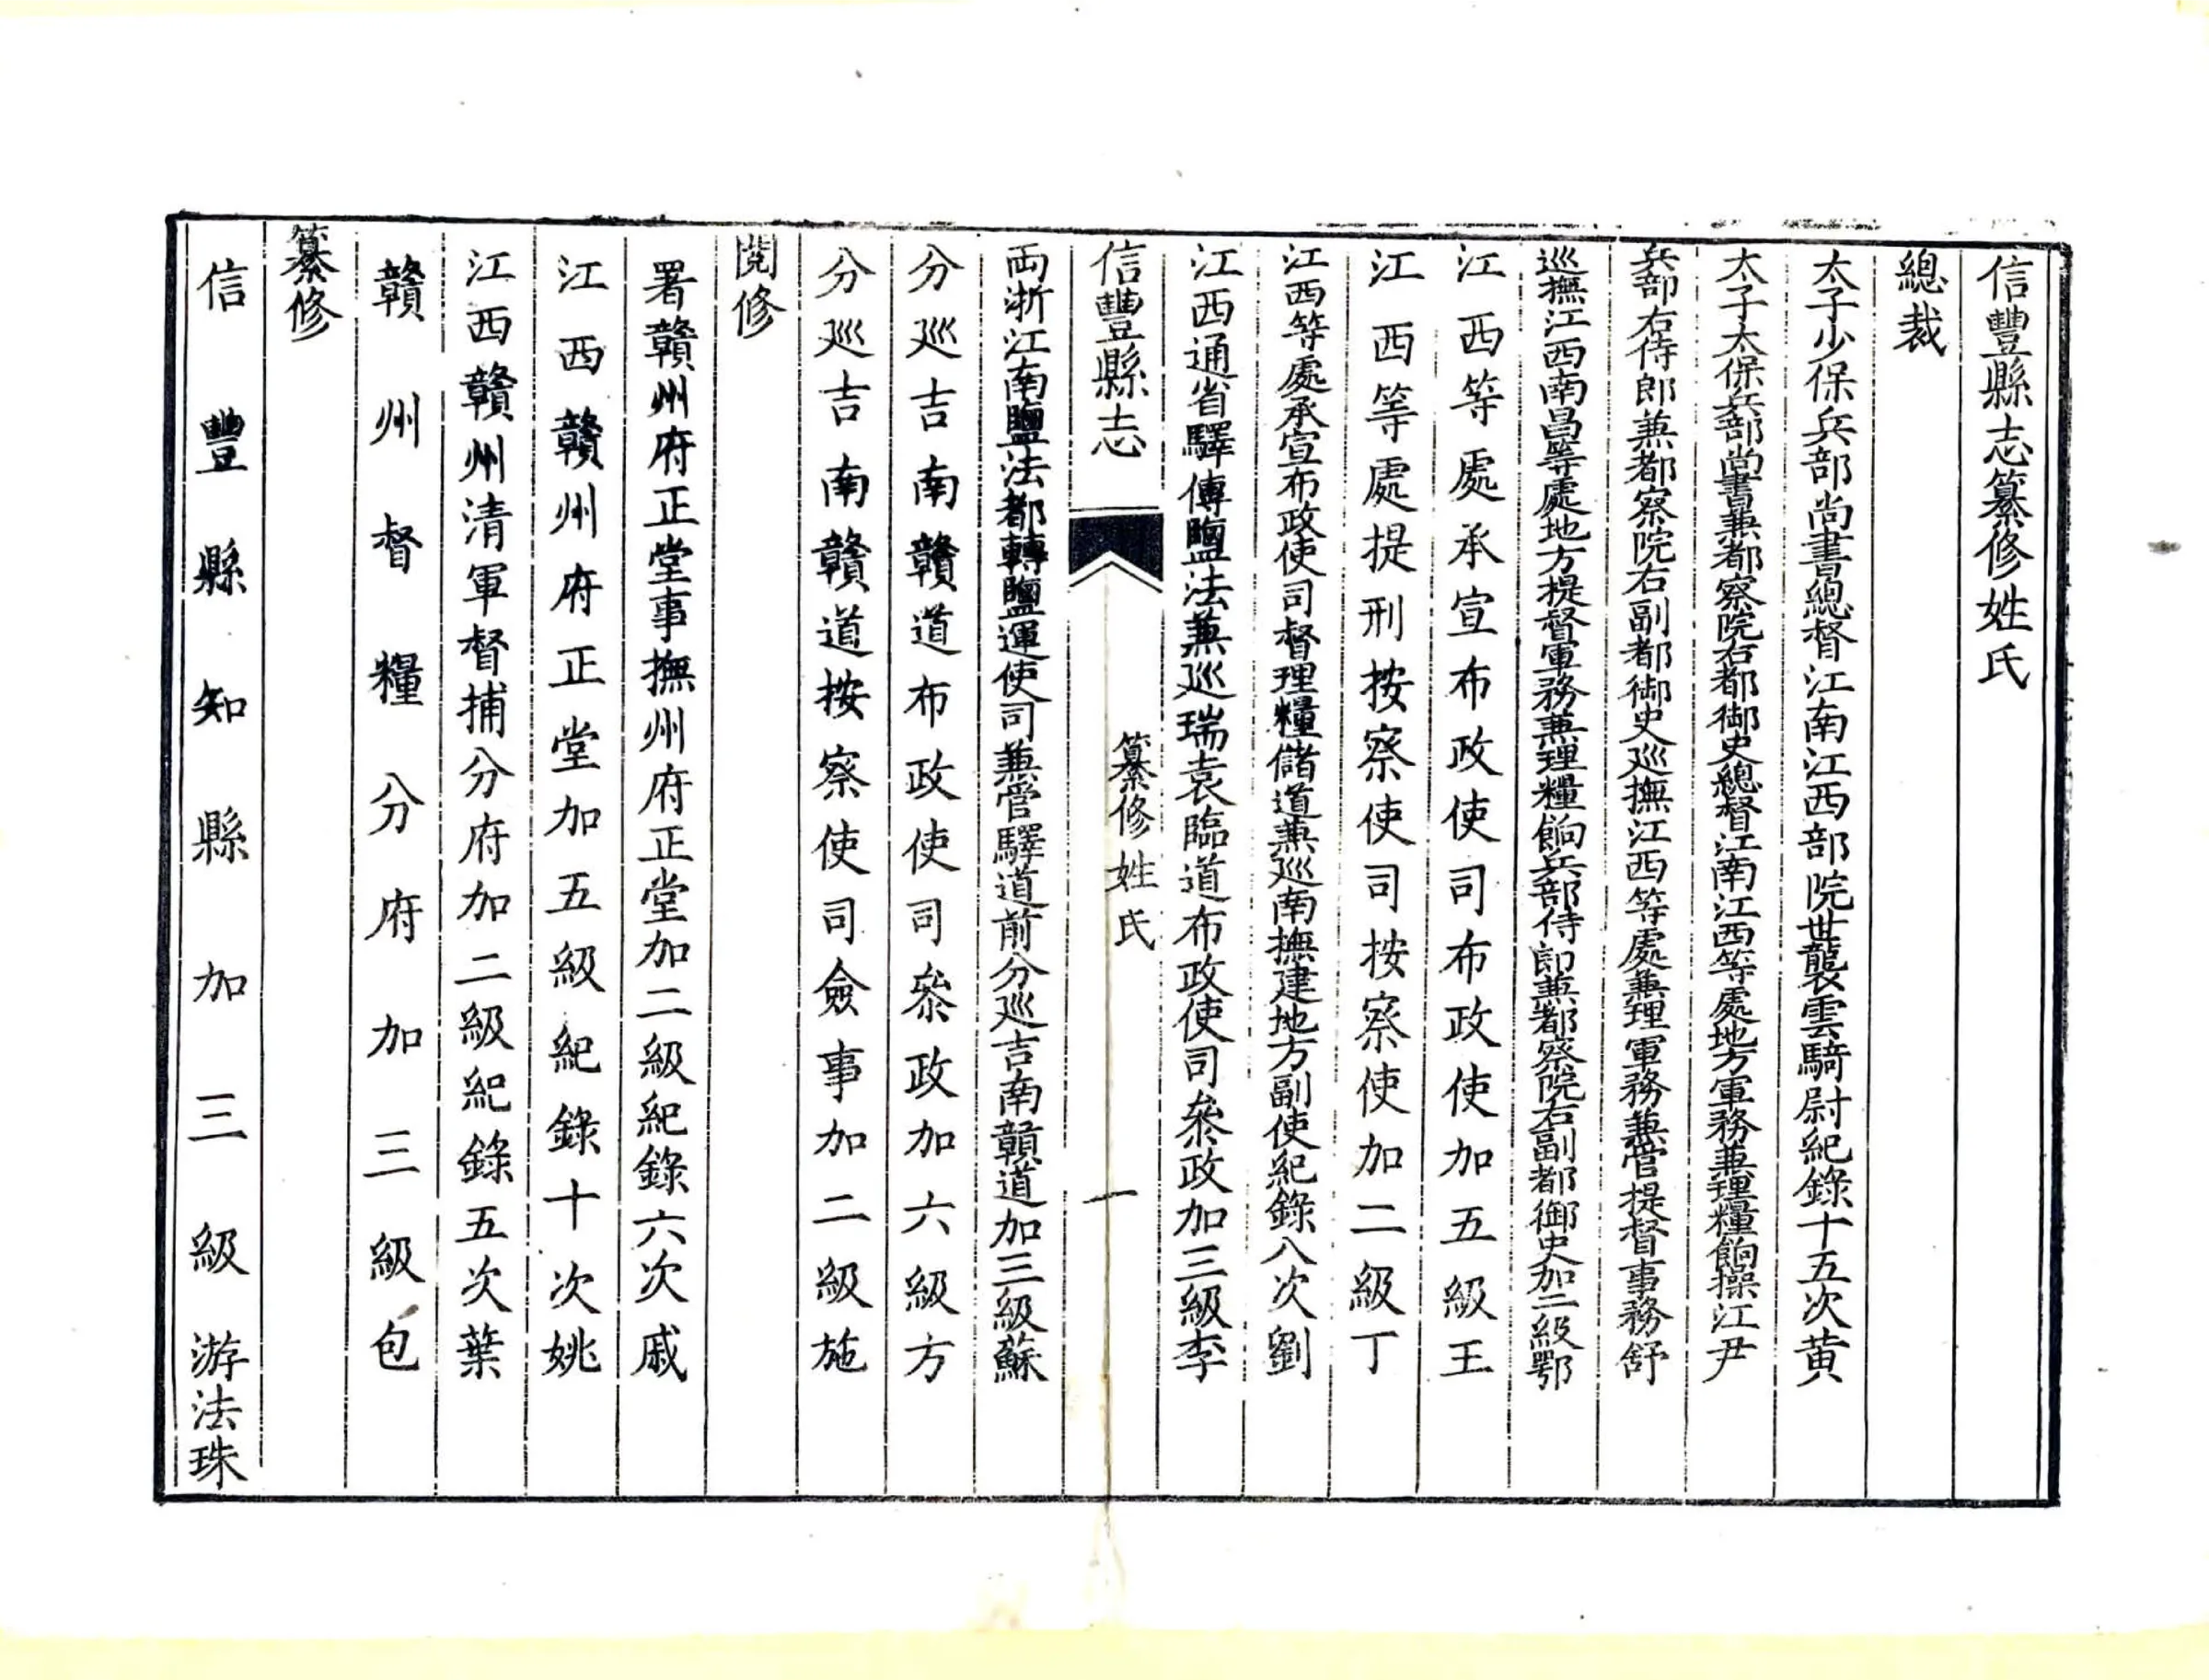 信豐縣志纂修姓氏
總裁
太子少保兵部尚書總督江南江西部院世襲雲騎尉紀錄十五次黃
太子太保兵部尚書兼都察院右都御史總督江南江西等處地方軍務兼理糧餉操江尹
兵部右侍郎兼都察院右副都御史巡撫江西等處兼理軍務兼管提督事務舒
巡撫江西南昌等處地方提督軍務兼理糧餉兵部侍郎兼都察院右副都御史加二級鄂
江西等處承宣布政使司布政使加五級王
江西等處提刑按察使司按察使加二級丁
江西等處承宣布政使司督理糧儲道兼巡南撫建地方副使紀錄八次劉
江西通省驛傳鹽法兼巡瑞袁臨道布政使司叅政加三級李
信豐縣志
纂修姓氏
一
両浙江南鹽法都轉鹽運使司兼管驛道前分巡吉南贛道加三級蘇
分巡吉南贛道布政使司叅政加六級方
分巡吉南贛道按察使司僉事加二級施
閱修
署贛州府正堂事撫州府正堂加二級紀錄六次戚
江西贛州府正堂加五級紀錄十次姚
江西贛州清軍督捕分府加二級紀錄五次葉
贛州督糧分府加三級包
纂修
信豐縣知縣加三級游法珠